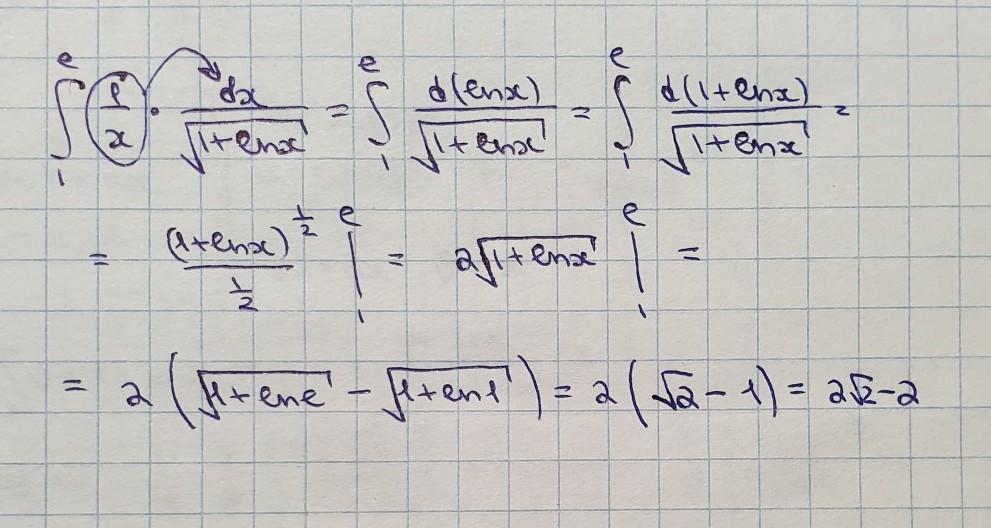 ∫₁ᵉ (1/x) · dx/√(1+ln x) = ∫₁ᵉ d(ln x)/√(1+ln x) = ∫₁ᵉ d(1+ln x)/√(1+ln x) =
= (1+ln x)^(1/2)/(1/2) |₁ᵉ = 2√(1+ln x) |₁ᵉ =
= 2(√(1+ln e) − √(1+ln 1)) = 2(√2 − 1) = 2√2 − 2